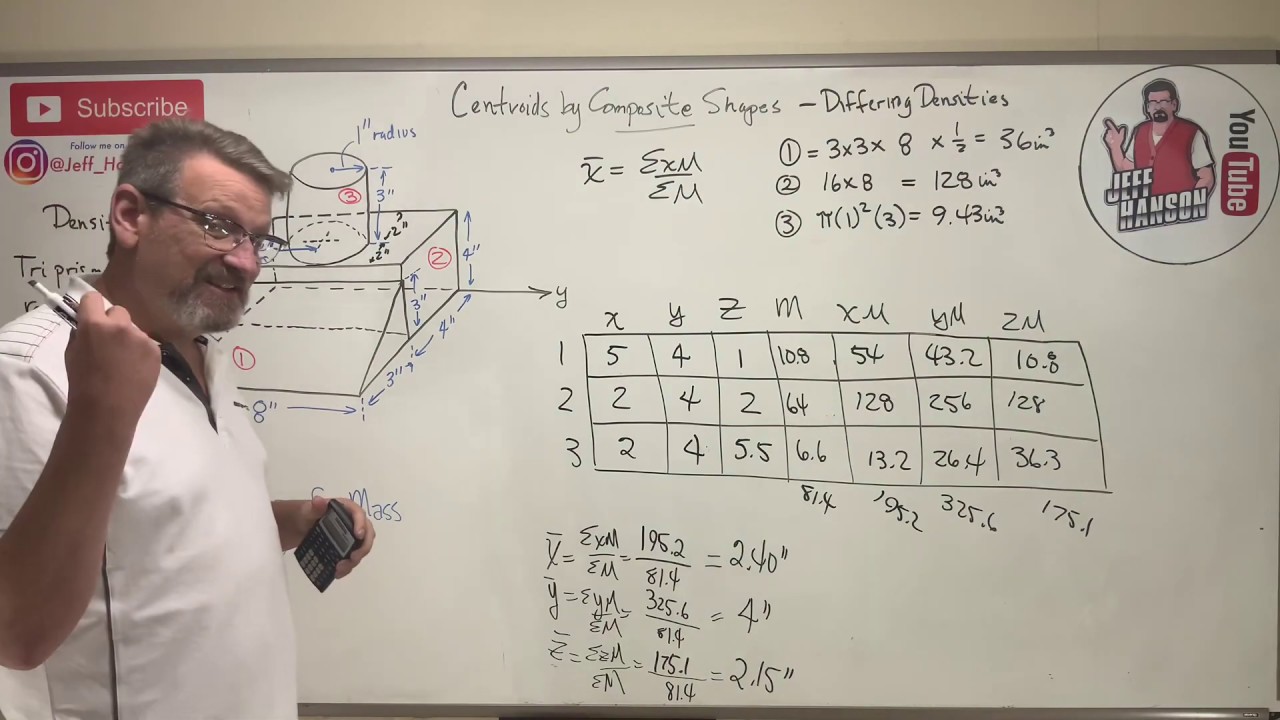 Subscribe
Follow me on
@Jeff_Ha
Centroids by Composite Shapes - Differing Densities
x̄ = ΣxM / ΣM
① = 3x3x 8 x ½ = 36in³
② 16x8 = 128in³
③ π(1)²(3) = 9.43in³
JEFF HANSON
YouTube
1" radius
3"
③
2"
2"
②
4"
3"
4"
y
①
3"
8"
Densit
Tri prism
Mass
x y z M xM yM zM
1 5 4 1 10.8 54 43.2 10.8
2 2 4 2 64 128 256 128
3 2 4 5.5 6.6 13.2 26.4 36.3
81.4 195.2 325.6 175.1
x̄ = ΣxM / ΣM = 195.2 / 81.4 = 2.40"
ȳ = ΣyM / ΣM = 325.6 / 81.4 = 4"
z̄ = ΣzM / ΣM = 175.1 / 81.4 = 2.15"